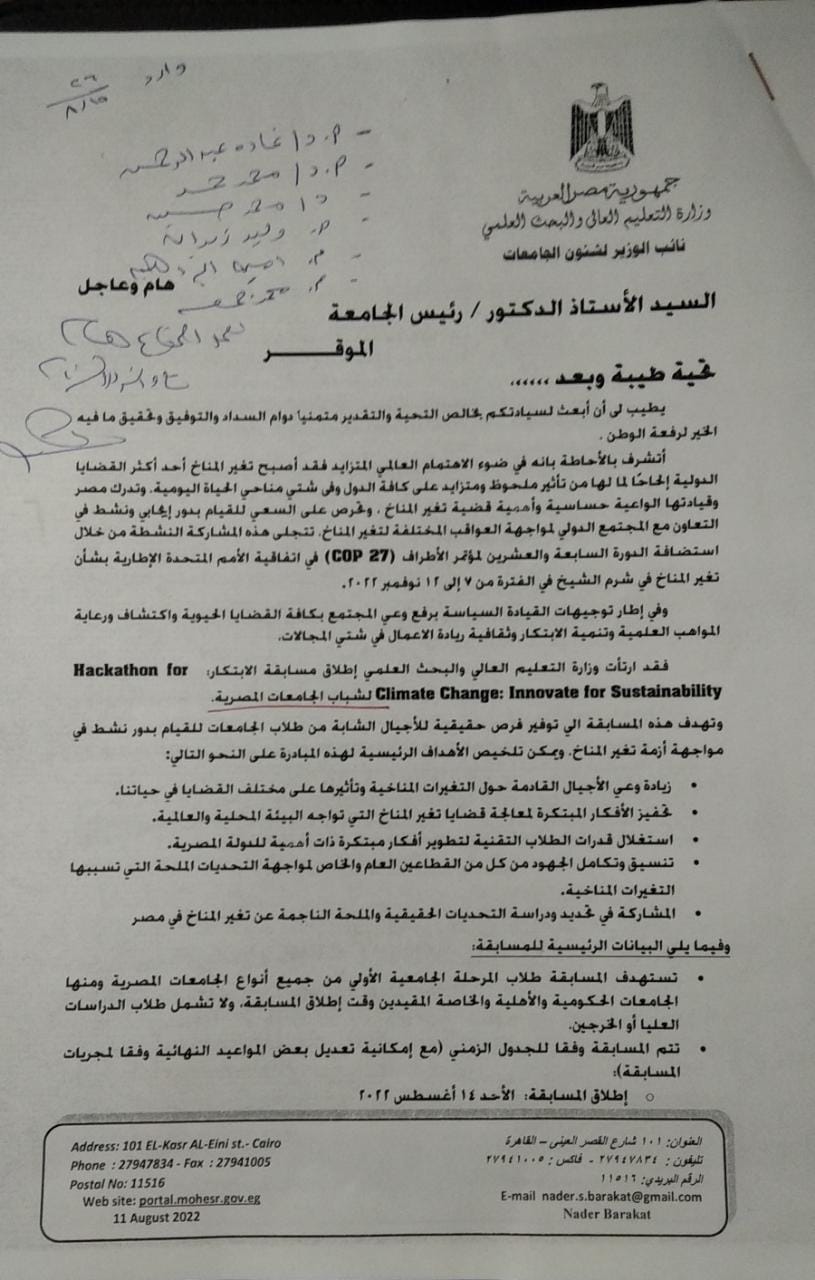 وارد
جمهورية مصر العربية
وزارة التعليم العالى والبحث العلمي
نائب الوزير لشئون الجامعات
- م.د/ غاده عبد الرحمن
- م.د/ محمد
- د/ محمد حسين
- م. وليد
هام وعاجل
السيد الأستاذ الدكتور / رئيس الجامعة
الموقـــــر
تحية طيبة وبعد ......
يطيب لى أن أبعث لسيادتكم بخالص التحية والتقدير متمنياً دوام السداد والتوفيق وتحقيق ما فيه
الخير لرفعة الوطن .
أتشرف بالأحاطة بانه في ضوء الاهتمام العالمي المتزايد فقد أصبح تغير المناخ أحد أكثر القضايا
الدولية إلحاحًا لما لها من تأثير ملحوظ ومتزايد على كافة الدول وفى شتي مناحي الحياة اليومية. وتدرك مصر
وقيادتها الواعية حساسية وأهمية قضية تغير المناخ ، وتحرص على السعي للقيام بدور إيجابي ونشط في
التعاون مع المجتمع الدولي لمواجهة العواقب المختلفة لتغير المناخ. تتجلى هذه المشاركة النشطة من خلال
استضافة الدورة السابعة والعشرين لمؤتمر الأطراف (COP 27) في اتفاقية الأمم المتحدة الإطارية بشأن
تغير المناخ في شرم الشيخ في الفترة من ٧ إلى ١٢ نوفمبر ٢٠٢٢.
وفي إطار توجيهات القيادة السياسة برفع وعي المجتمع بكافة القضايا الحيوية واكتشاف ورعاية
المواهب العلمية وتنمية الابتكار وثقافية ريادة الاعمال في شتي المجالات.
فقد ارتأت وزارة التعليم العالي والبحث العلمي إطلاق مسابقة الابتكار: Hackathon for
Climate Change: Innovate for Sustainability لشباب الجامعات المصرية.
وتهدف هذه المسابقة الي توفير فرص حقيقية للأجيال الشابة من طلاب الجامعات للقيام بدور نشط في
مواجهة أزمة تغير المناخ. ويمكن تلخيص الأهداف الرئيسية لهذه المبادرة على النحو التالي:
• زيادة وعي الأجيال القادمة حول التغيرات المناخية وتأثيرها على مختلف القضايا في حياتنا.
• تحفيز الأفكار المبتكرة لمعالجة قضايا تغير المناخ التي تواجه البيئة المحلية والعالمية.
• استغلال قدرات الطلاب التقنية لتطوير أفكار مبتكرة ذات أهمية للدولة المصرية.
• تنسيق وتكامل الجهود من كل من القطاعين العام والخاص لمواجهة التحديات الملحة التي تسببها
التغيرات المناخية.
• المشاركة في تحديد ودراسة التحديات الحقيقية والملحة الناجمة عن تغير المناخ في مصر
وفيما يلي البيانات الرئيسية للمسابقة:
• تستهدف المسابقة طلاب المرحلة الجامعية الأولي من جميع أنواع الجامعات المصرية ومنها
الجامعات الحكومية والأهلية والخاصة المقيدين وقت إطلاق المسابقة، ولا تشمل طلاب الدراسات
العليا أو الخرجين.
• تتم المسابقة وفقا للجدول الزمني (مع إمكانية تعديل بعض المواعيد النهائية وفقا لمجريات
المسابقة):
○ إطلاق المسابقة: الأحد ١٤ أغسطس ٢٠٢٢
العنوان: ١٠١ شارع القصر العينى – القاهرة
تليفون : ٢٧٩٤٧٨٣٤ - فاكس : ٢٧٩٤١٠٠٥
الرقم البريدي: ١١٥١٦
E-mail nader.s.barakat@gmail.com
Nader Barakat
Address: 101 EL-Kasr AL-Eini st.- Cairo
Phone : 27947834 - Fax : 27941005
Postal No: 11516
Web site: portal.mohesr.gov.eg
11 August 2022